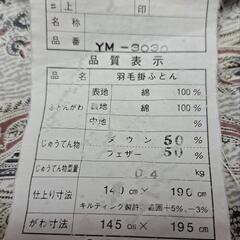 上 印
名称
品番 YM-3030
品質表示
品名 羽毛掛ふとん
ふとんがわ 表地 綿 100%
裏地 綿 100%
中地 %
じゅうてん物 ダウン 50%
フェザー 50%
じゅうてん物重量 0.4 kg
仕上り寸法 140cm× 190cm
キルティング製許容範囲+5%、-3%
がわ寸法 145cm× 195cm